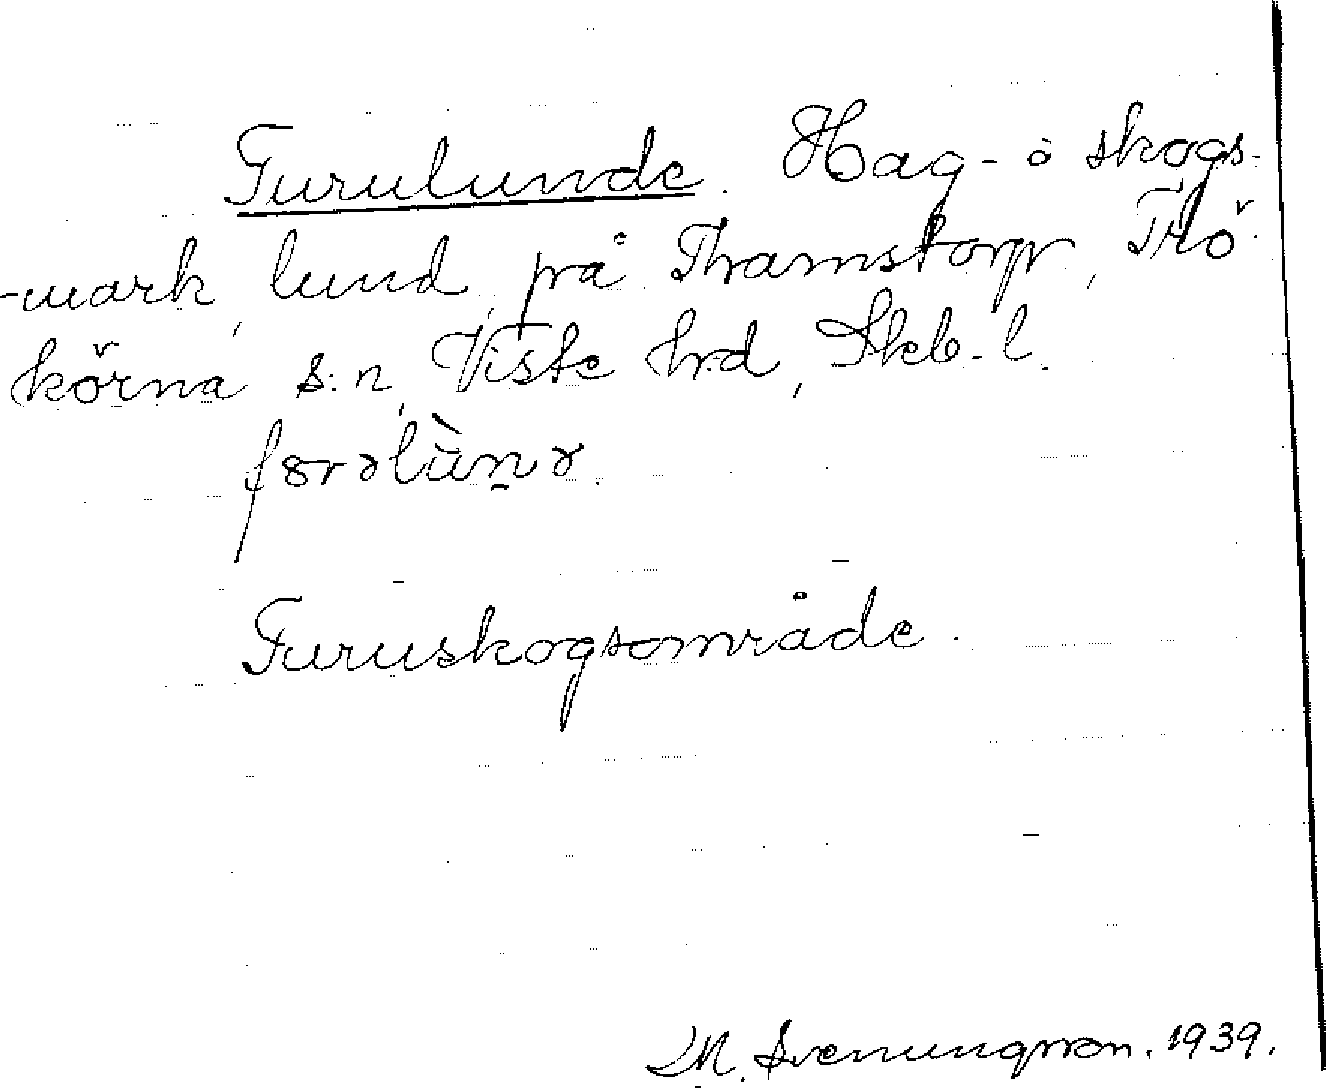 Furulunde. Hag- o skogs-
-mark, lund, på Thamstorp, Flo
körna s:n, Viste hrd, Skb. l.
Furuskogsområde.
M. Svenungsson. 1939.